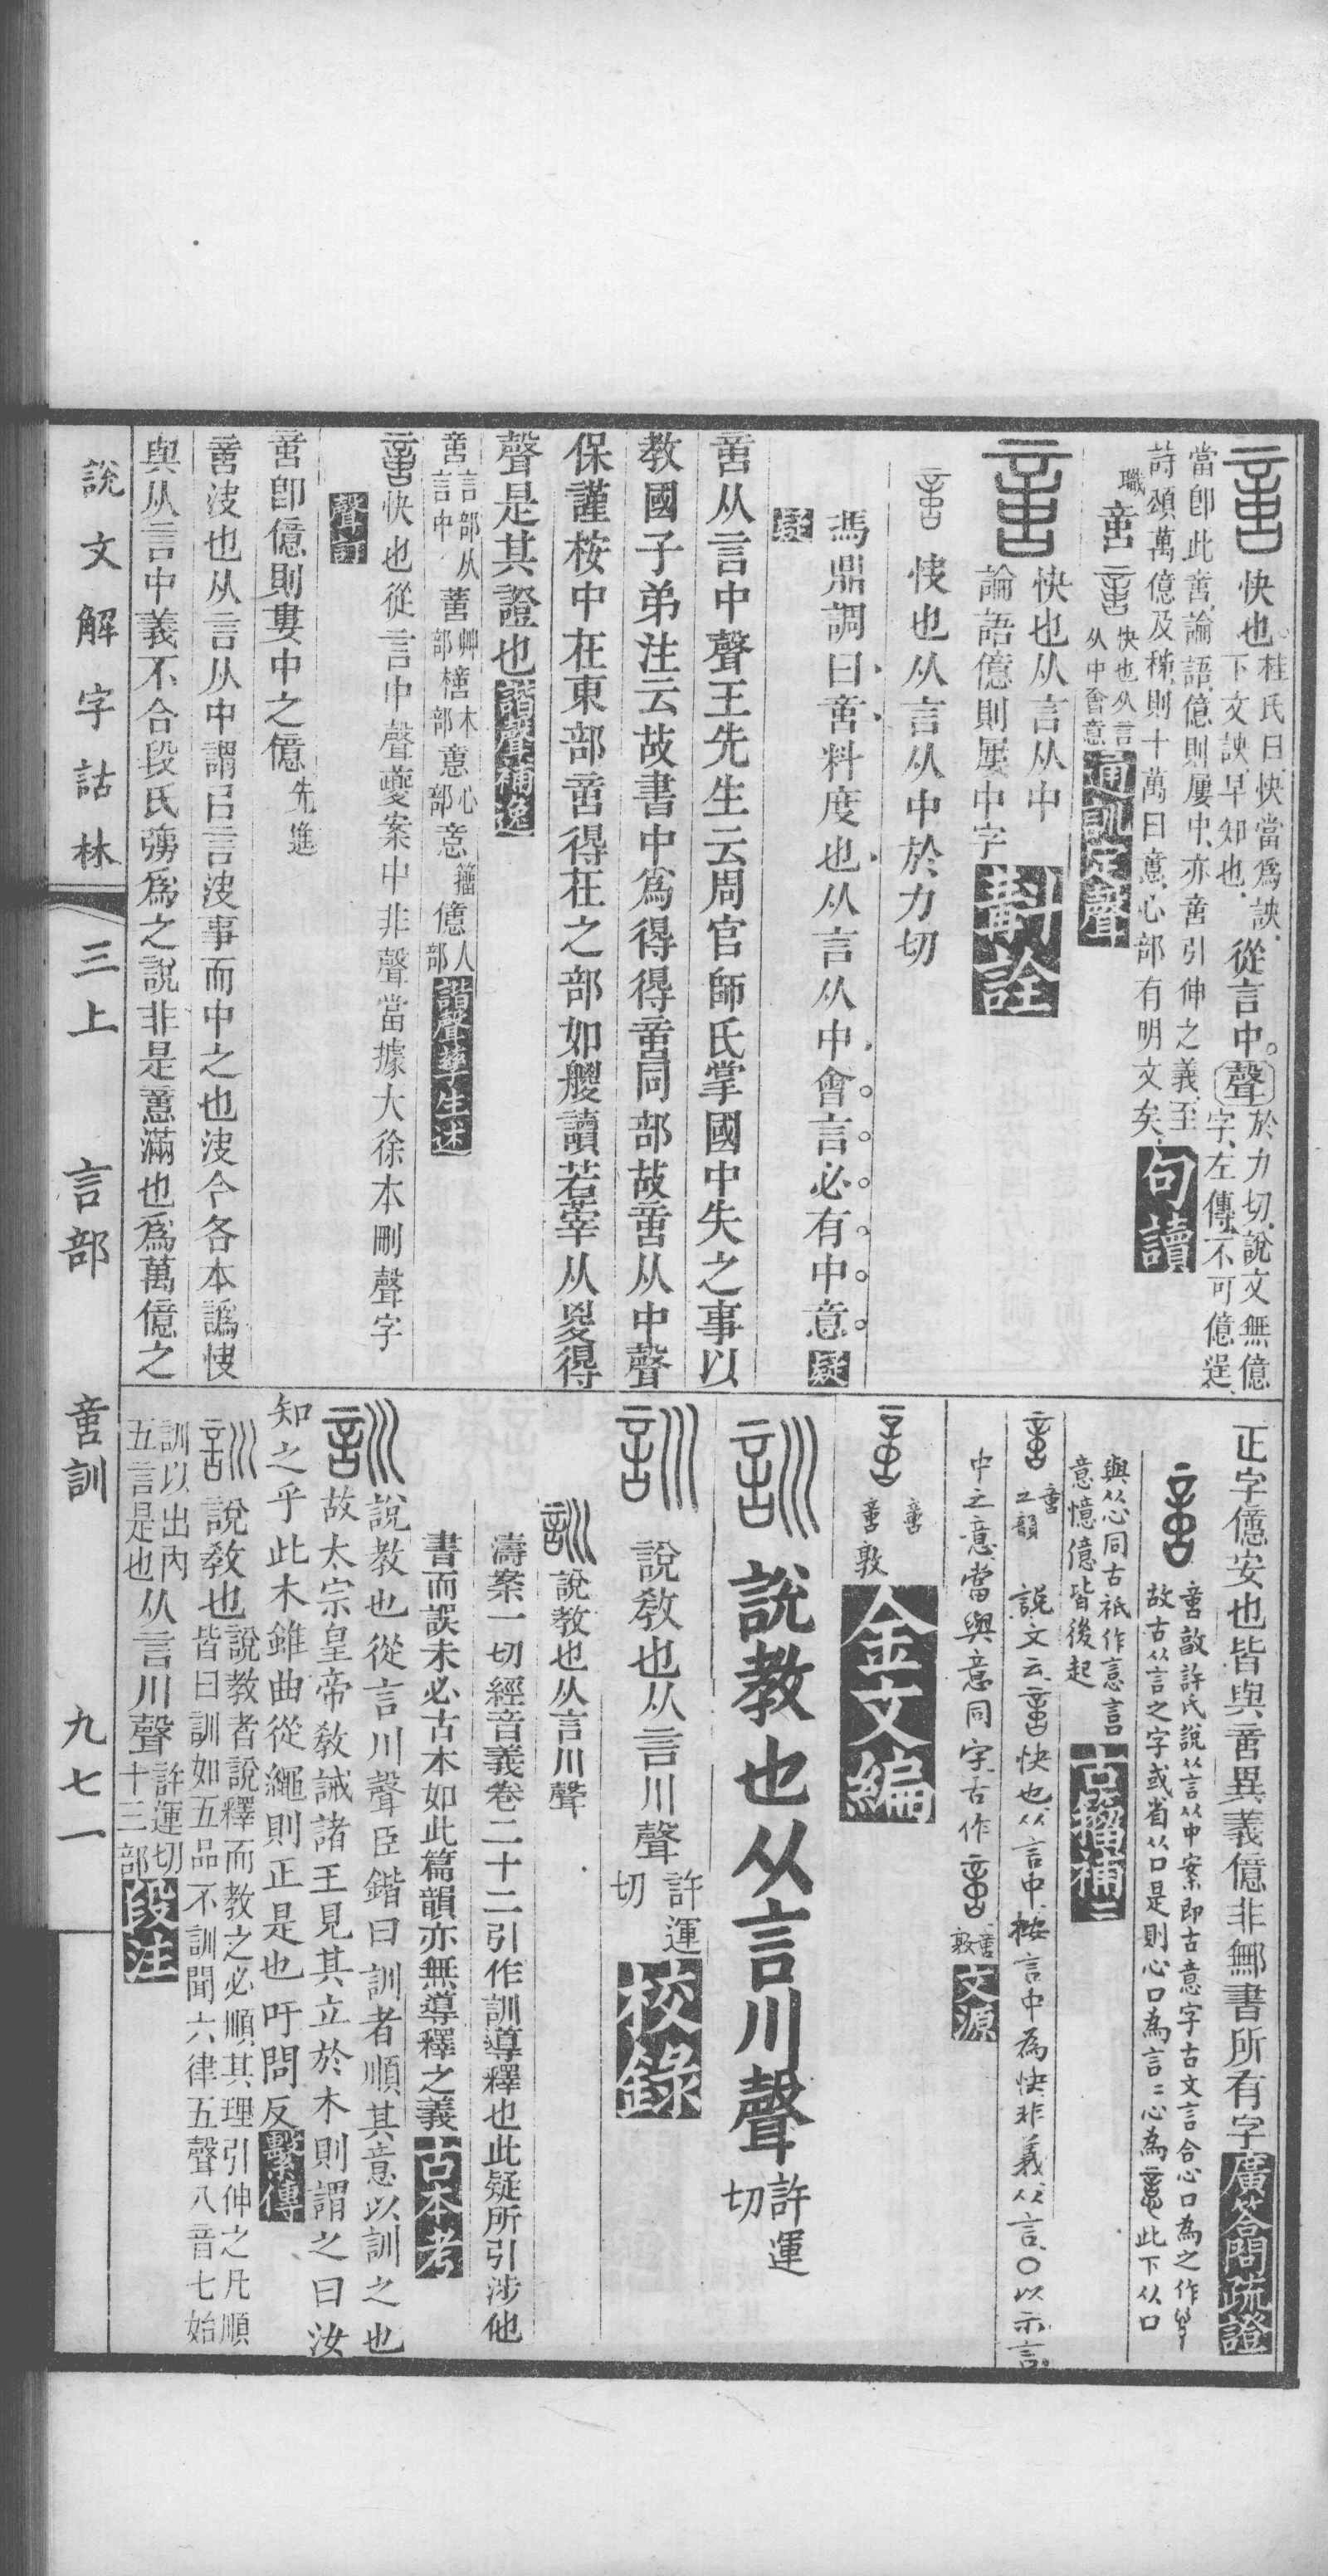 快也桂氏曰快當爲諛下文諛早知也從言中聲於力切說文無億字左傳不可億逞
當卽此䇂論語億則屢中亦䇂引伸之義至
詩頌萬億及秭則十萬曰意心部有明文矣句讀
職 啻 快也从言从中會意通訓定聲
快也从言从中
論語億則屢中字斠詮
快也从言从中於力切
馮鼎調曰啻料度也从言从中會言必有中意疑
疑
啻从言中聲王先生云周官師氏掌國中失之事以
教國子弟注云故書中爲得得啻同部故啻从中聲
保謹桉中在東部啻得在之部如艐讀若宰从㚇得
聲是其證也諧聲補逸
啻言部从言中 蓄艸部 檍木部 意心部 意籒 億人部 諧聲孳生述
快也從言中聲夔案中非聲當據大徐本刪聲字
聲訂
啻卽億則婁中之億先進
啻㳏也从言从中謂㠯言㳏事而中之也㳏今各本譌快
與从言中義不合段氏彊爲之說非是意滿也爲萬億之
正字億安也皆與啻異義億非鄦書所有字廣答問疏證
啻敦許氏說从言从中案即古意字古文言合心口為之作
故古从言之字或省从口是則心口為言言心為意此下从口
與从心同古祇作意言
意憶億皆後起古籒補二
啻 說文云啻快也从言中按言中為快非義从言○以示言
中之意當與意同字古作 啻敦文源
啻 啻敦金文編
訓 說教也从言川聲許運切
訓 說教也从言川聲許運切校錄
訓 說教也从言川聲
濤案一切經音義卷二十二引作訓導釋也此疑所引涉他
書而誤未必古本如此篇韻亦無導釋之義古本考
訓 說教也從言川聲臣鍇曰訓者順其意以訓之也
故太宗皇帝教誡諸王見其立於木則謂之曰汝
知之乎此木雖曲從繩則正是也吁問反繫傳
訓 說教也說教者說釋而教之必順其理引伸之凡順皆曰訓如五品不訓聞六律五聲八音七始
訓以出內五言是也从言川聲許運切十三部段注
說文解字詁林 三上 言部 啻訓 九七一